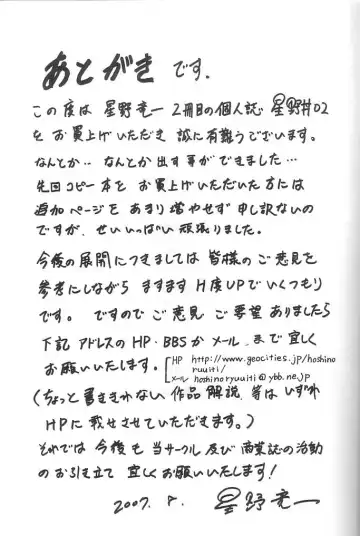 あとがきです.
この度は 星野竜一 2冊目の個人誌 星野丼02
を お買上げいただき 誠に有難うございます。
なんとか‥ なんとか出す事ができました…
先回コピー本を お買上げいただいた方には
追加ページを あまり増やせず 申し訳ないの
ですが、せいいっぱい 頑張りました。
今後の展開につきましては 皆様の ご意見を
参考にしながら ますます H度UPでいくつもり
です。 ですので ご意見 ご要望 ありましたら
下記 アドレスの HP・BBSか メール まで 宜しく
お願いいたします。
HP http://www.geocities.jp/hoshino
ruuiti/
メール hoshinoryuuiti@ybb.ne.jp
(ちょっと書ききれない 作品 解説 等は いずれ
HPに 載せさせていただきます。)
それでは 今後も 当サークル 及び 商業誌の活動
の お引き立て 宜しくお願いいたします!
2007. 8. 星野竜一